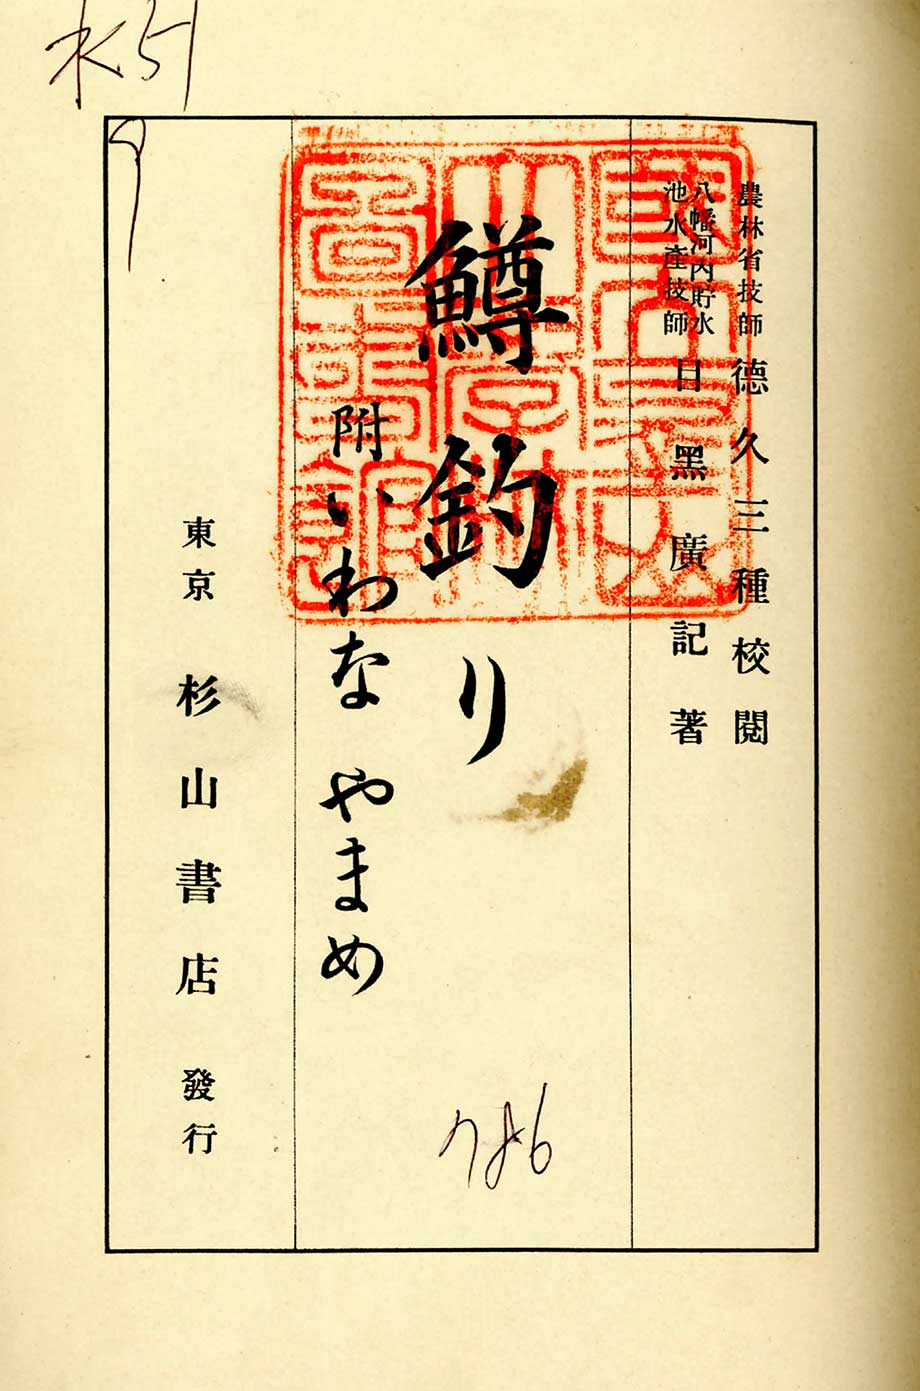 農林省技師 德久三種校閱
八幡河內貯水
池水產技師 目黑廣記著
鱒釣り
附いわな やまめ
東京 杉山書店 發行
水51